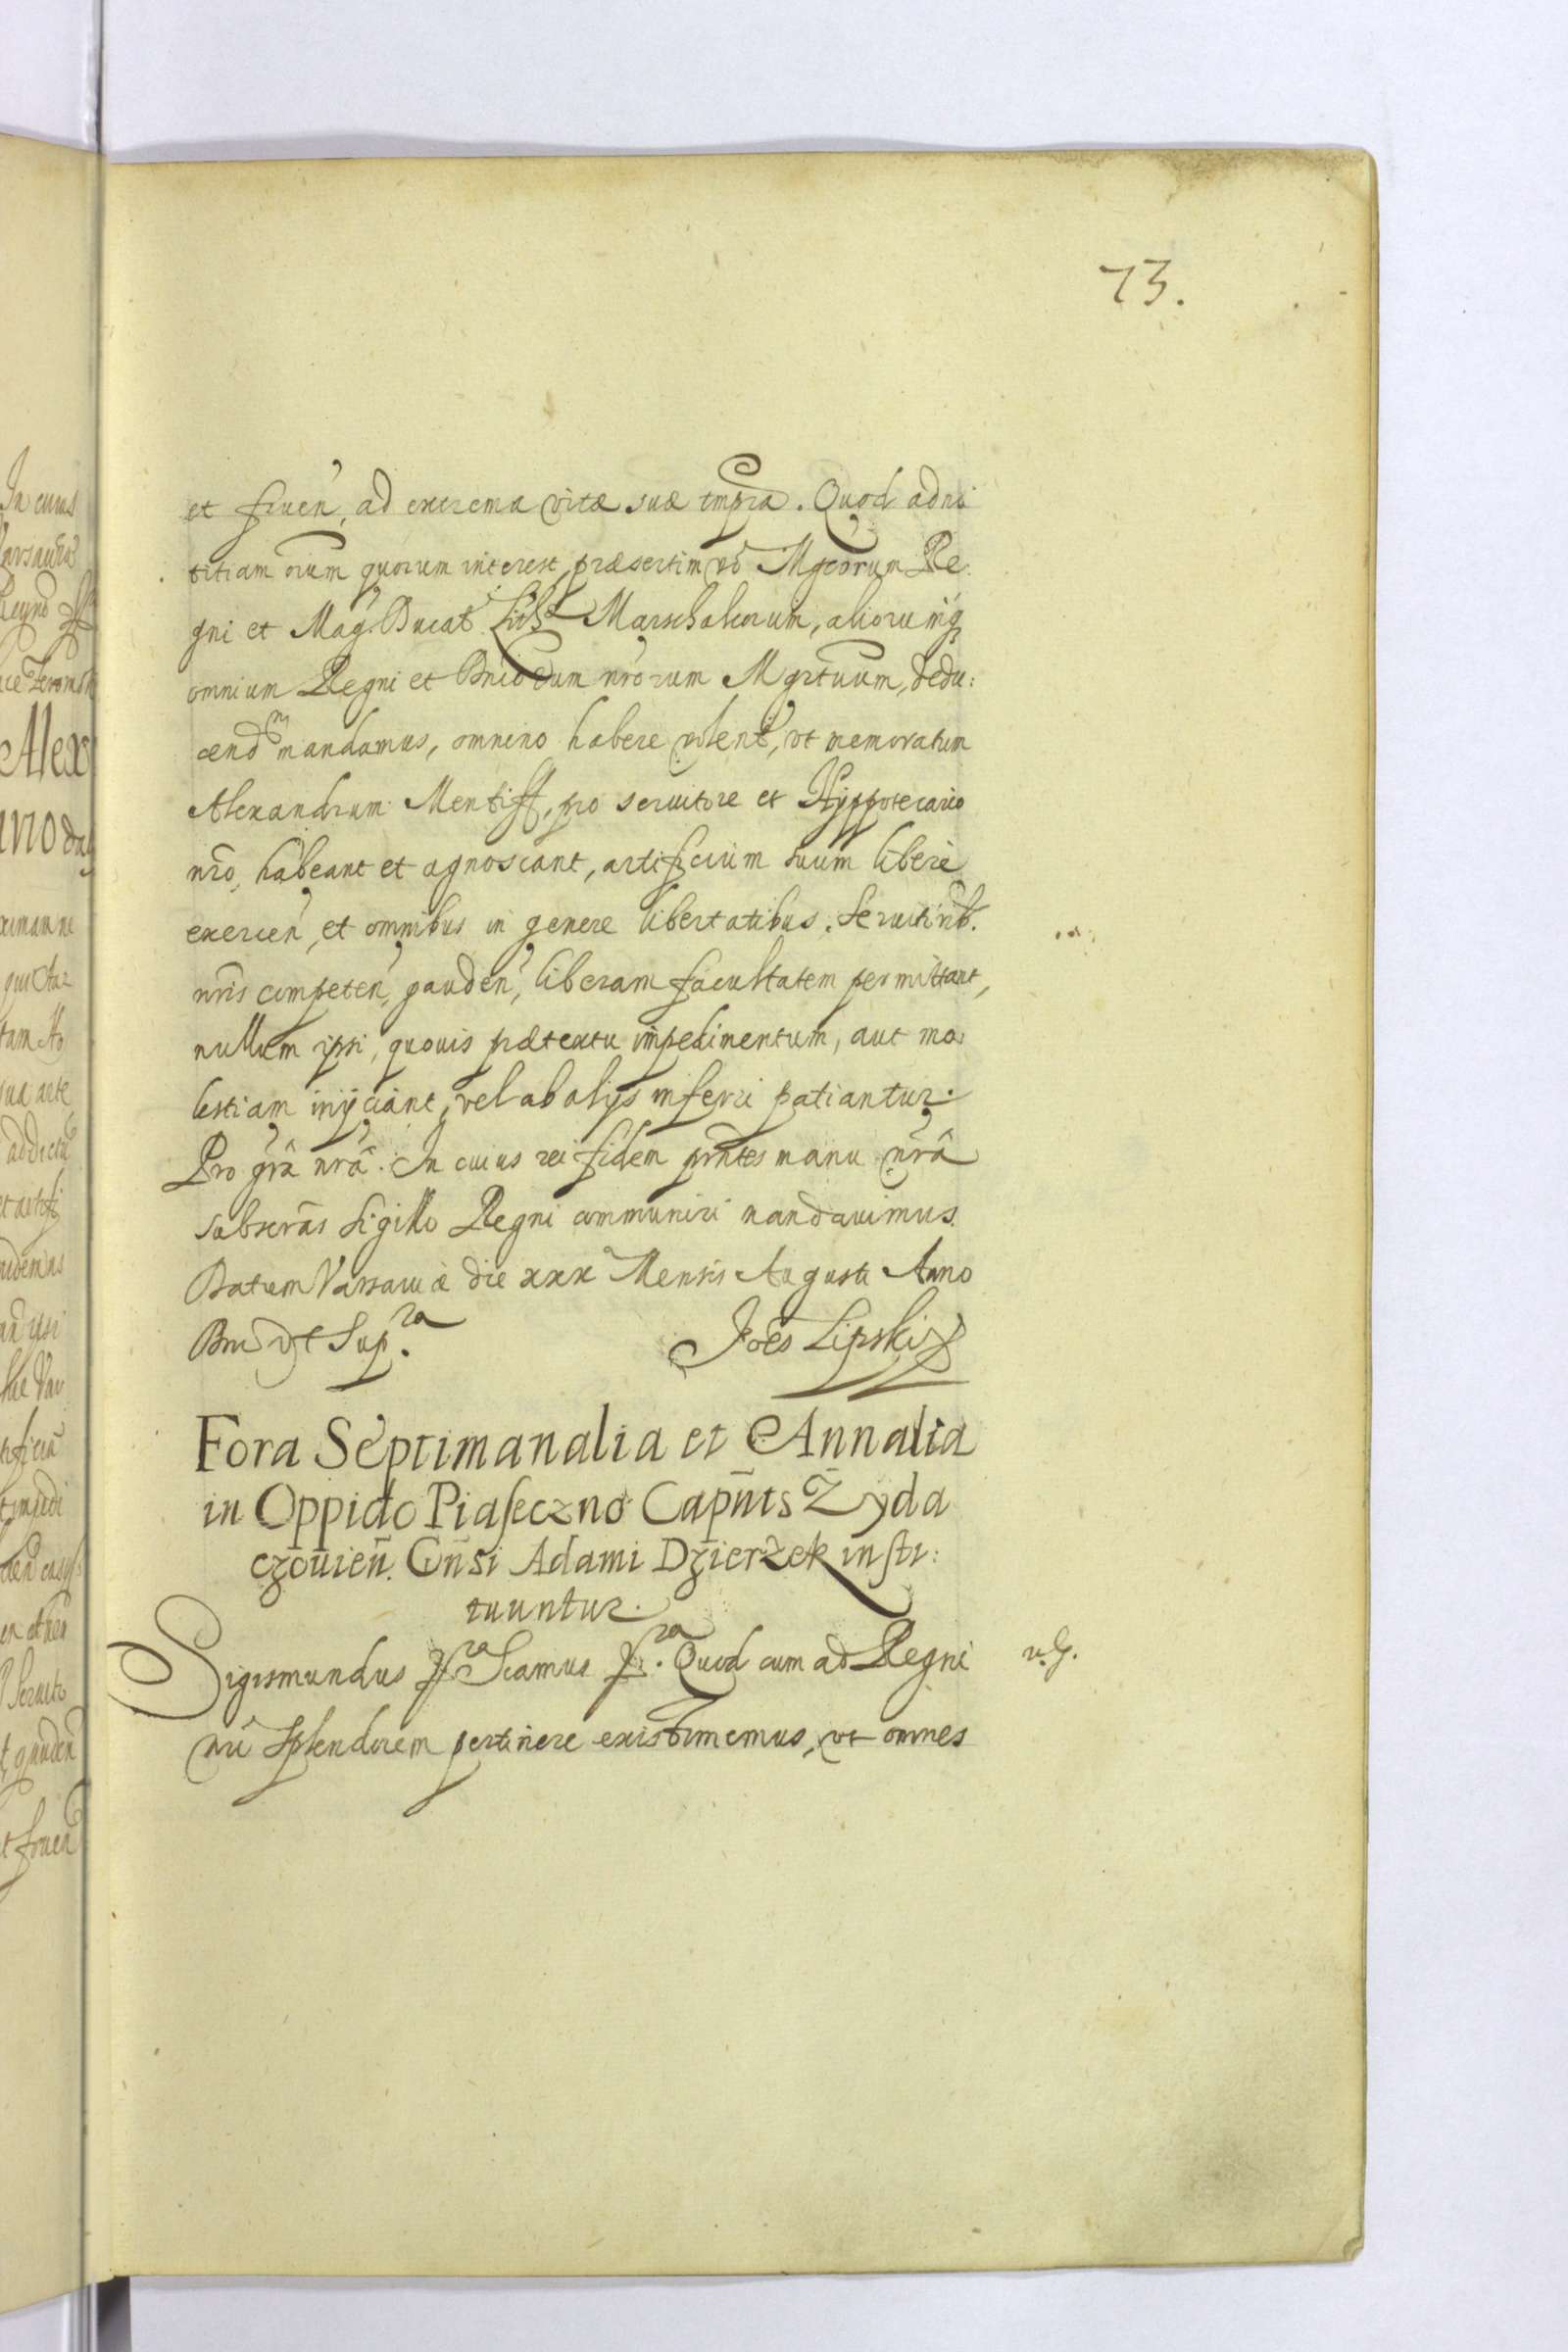 73.
et fruen, ad extrema vitæ suæ tmpra. Quod ad no
titiam oium quorum interest, præsertim vo Mgcorum Re
gni et Mag. Ducat Lith. Marschalcorum, aliorumq
omnium Regni et Dniorum nrorum Mgrtuum, dedu:
cend mandamus, omnino habere volent, vt memoratum
Alexandrum Mentiff, pro seruitore et Hyppotecario
nro, habeant et agnoscant, artificium suum libere
exercen, et omnibus in genere libertatibus, Seruitorib.
nris competen, gauden, liberam facultatem permittant,
nullum ipsi, quouis prætextu impedimentum, aut mo
lestiam inijciant, vel ab alijs inferri patiantur.
Pro gra nra. In cuius rei fidem prntes manu nra
subscras Sigillo Regni communiri mandauimus.
Datum Varsauiæ die xxx Mensis Augusti Anno
Dni vt Supra.
Joes Lipski
Fora Septimanalia et Annalia
in Oppido Piaseczno Capnts Żyda
czouien. Gnsi Adami Dzierżek insti:
tuuntur.
Sigismundus Scamus Quod cum ad Regni
nri Splendorem pertinere existimemus, vt omnes